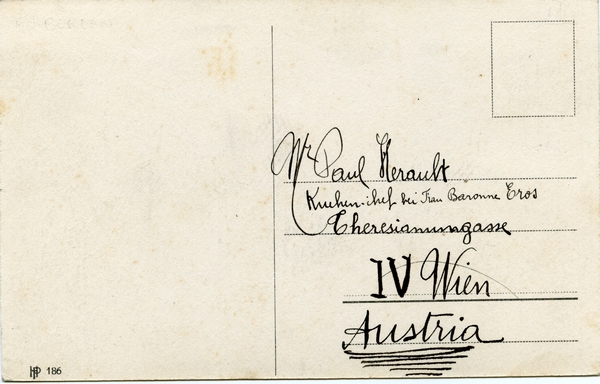 Mr Paul Herault
Küchen-chef bei Frau Baronne Eros
Theresianumgasse
IV Wien
Austria
HP 186